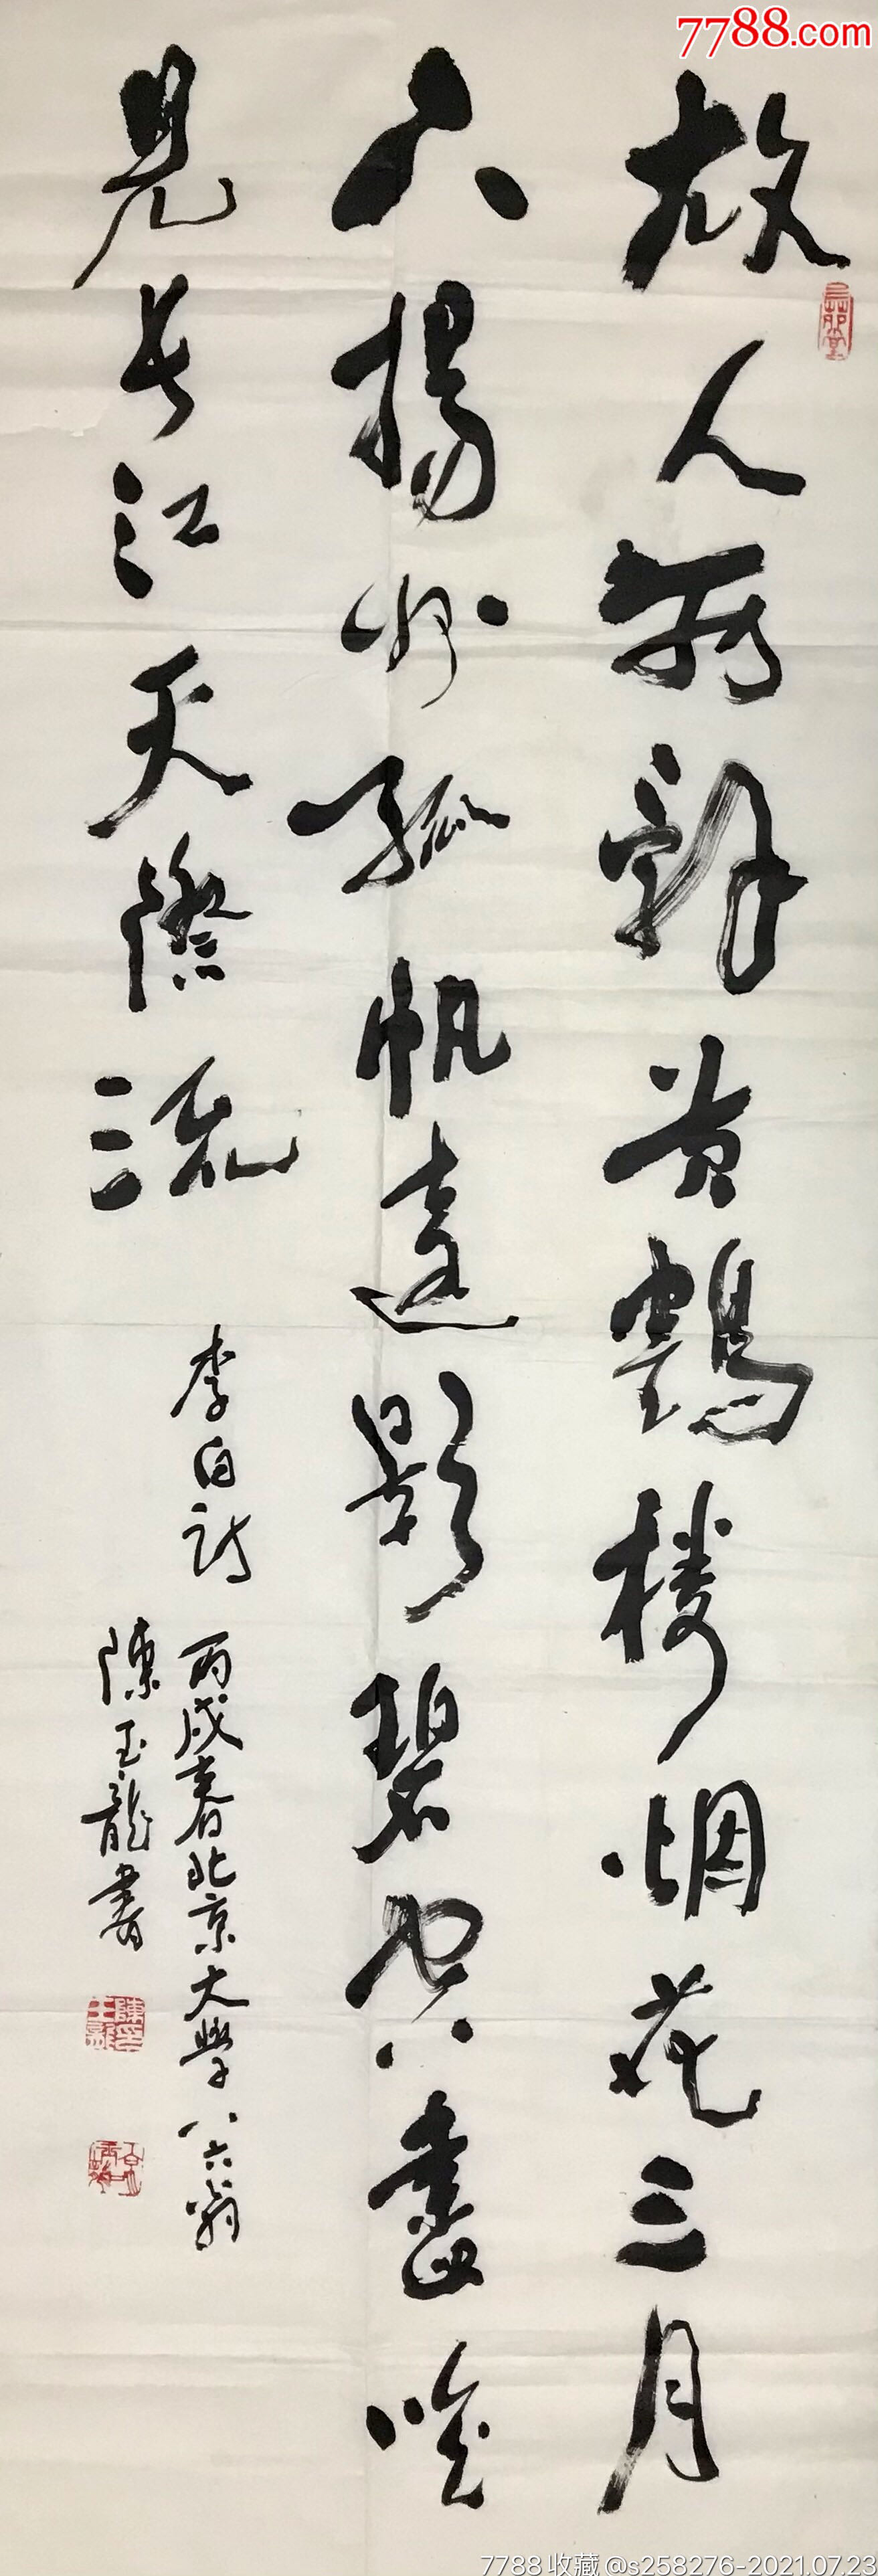 7788.com
故人西辭黄鶴樓烟花三月
下揚州孤帆遠影碧空盡唯
見長江天際流
李白詩
丙戌春北京大學八六翁
陳玉龍書
7788收藏@s258276-2021.07.23